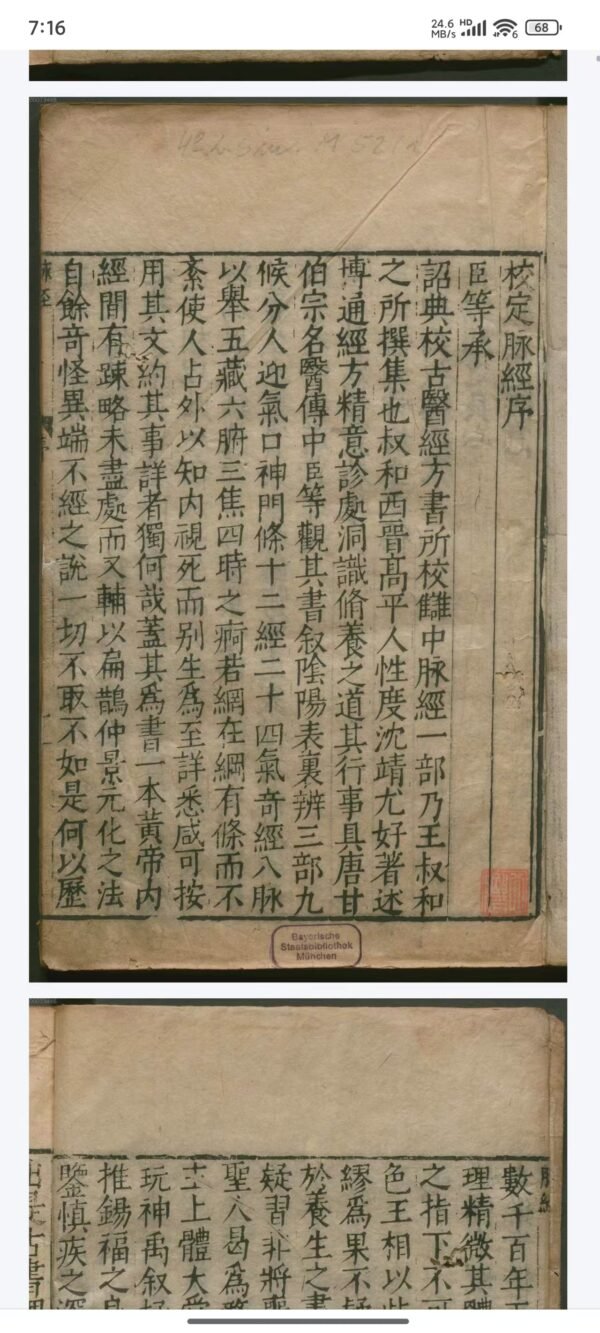 7:16
24.6 MB/s
HD
6
68
校定脉經序
臣等承
詔典校古醫經方書所校讎中脉經一部乃王叔和
之所撰集也叔和西晉高平人性度沈靖尤好著述
博通經方精意診處洞識脩養之道其行事具唐甘
伯宗名醫傳中臣等觀其書叙陰陽表裏辨三部九
候分人迎氣口神門條十二經二十四氣奇經八脉
以舉五藏六腑三焦四時之痾若網在綱有條而不
紊使人占外以知内視死而别生爲至詳悉咸可按
用其文約其事詳者獨何哉蓋其爲書一本黄帝内
經間有踈略未盡處而又輔以扁鵲仲景元化之法
自餘奇怪異端不經之說一切不取不如是何以歷
脉經
Bayerische
Staatsbibliothek
München
數千百年
理精微其
之指下不可
色王相以
繆爲果不
於養生之書
疑習非將
聖人曷爲
主上體大
玩神禹叙
推錫福之
鑒慎疾之深